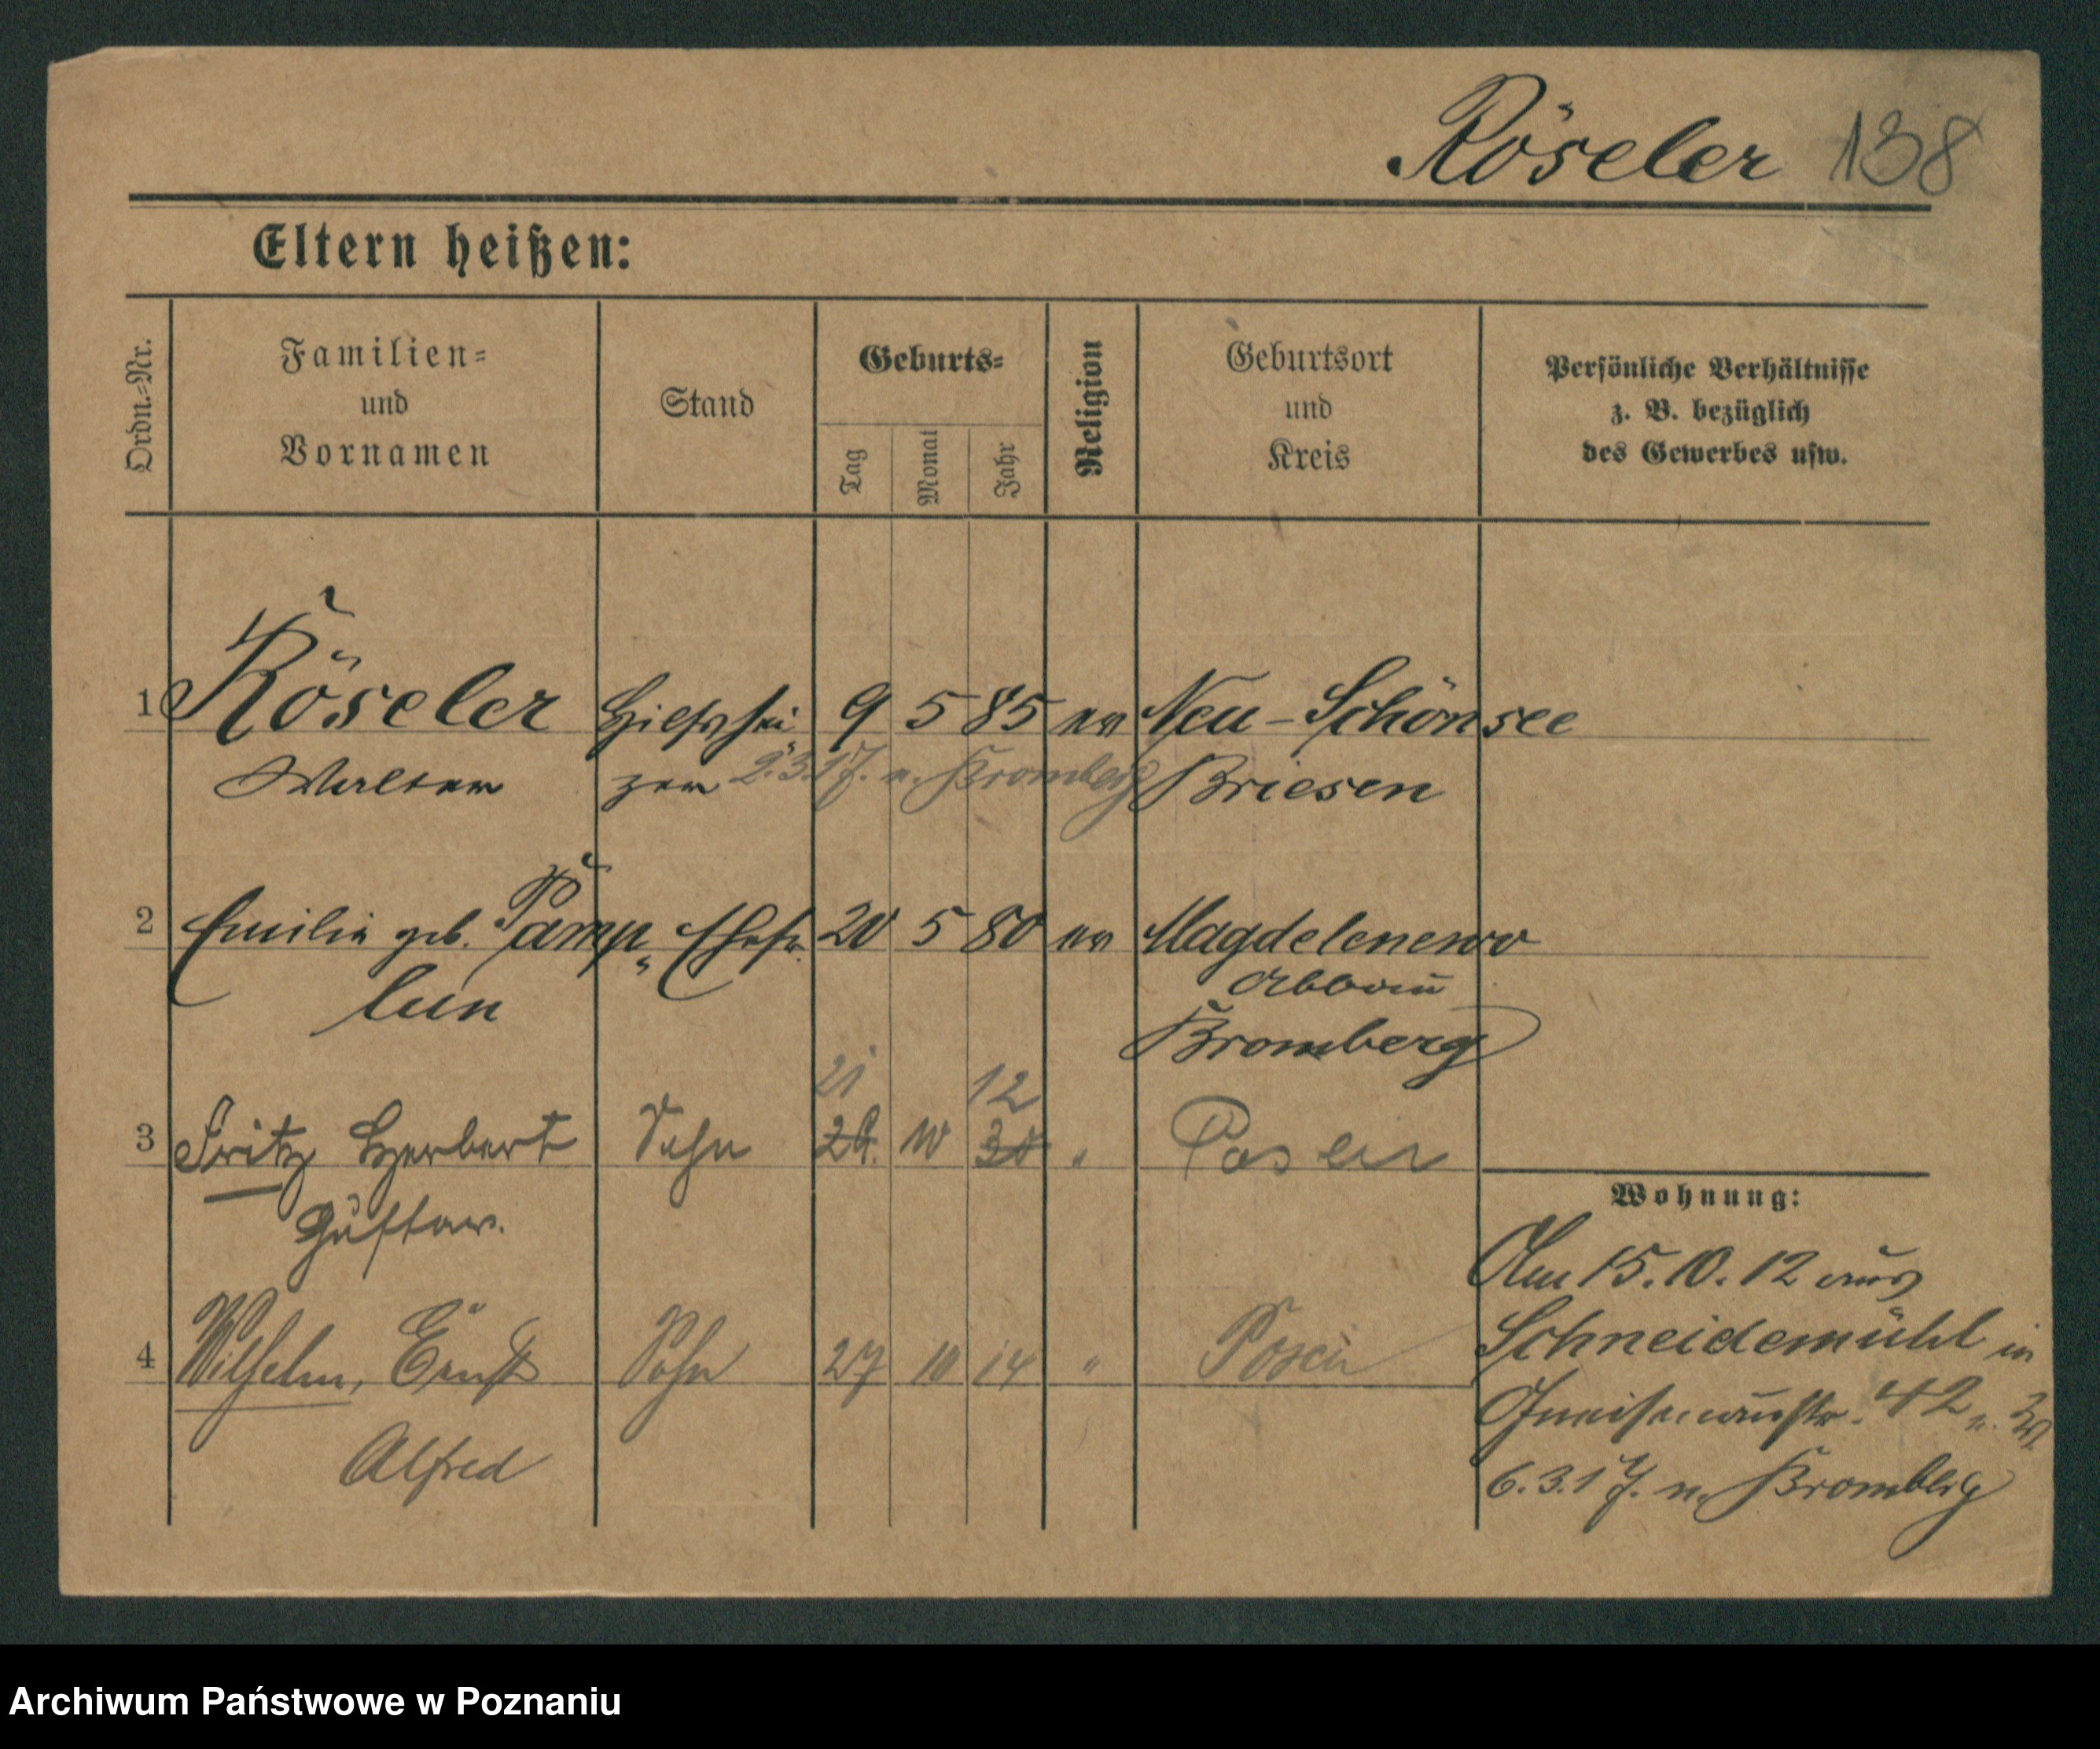 Röseler 138
Eltern heißen:
Ordn.-Nr.
Familien-
und
Vornamen
Stand
Geburts-
Tag
Monat
Jahr
Religion
Geburtsort
und
Kreis
Persönliche Verhältnisse
z. B. bezüglich
des Gewerbes usw.
1 Röseler Hilfshei 9 5 85 ev Neu-Schönsee
Walter zer 2.3.17. n. Bromberg Briesen
2 Emilie geb. Pamp- Ehefr. 20 5 80 ev Magdelenewo
lun Abbau
Bromberg
21 12
3 Fritz Herbert Sohn 10 " Posen
Gustav.
4 Wilhelm, Ernst Sohn 27 10 14 " Posen
Alfred
Wohnung:
Am 15.10.12 aus
Schneidemühl in
Gneisenaustr. 42
6.3.17. n. Bromberg
Archiwum Państwowe w Poznaniu